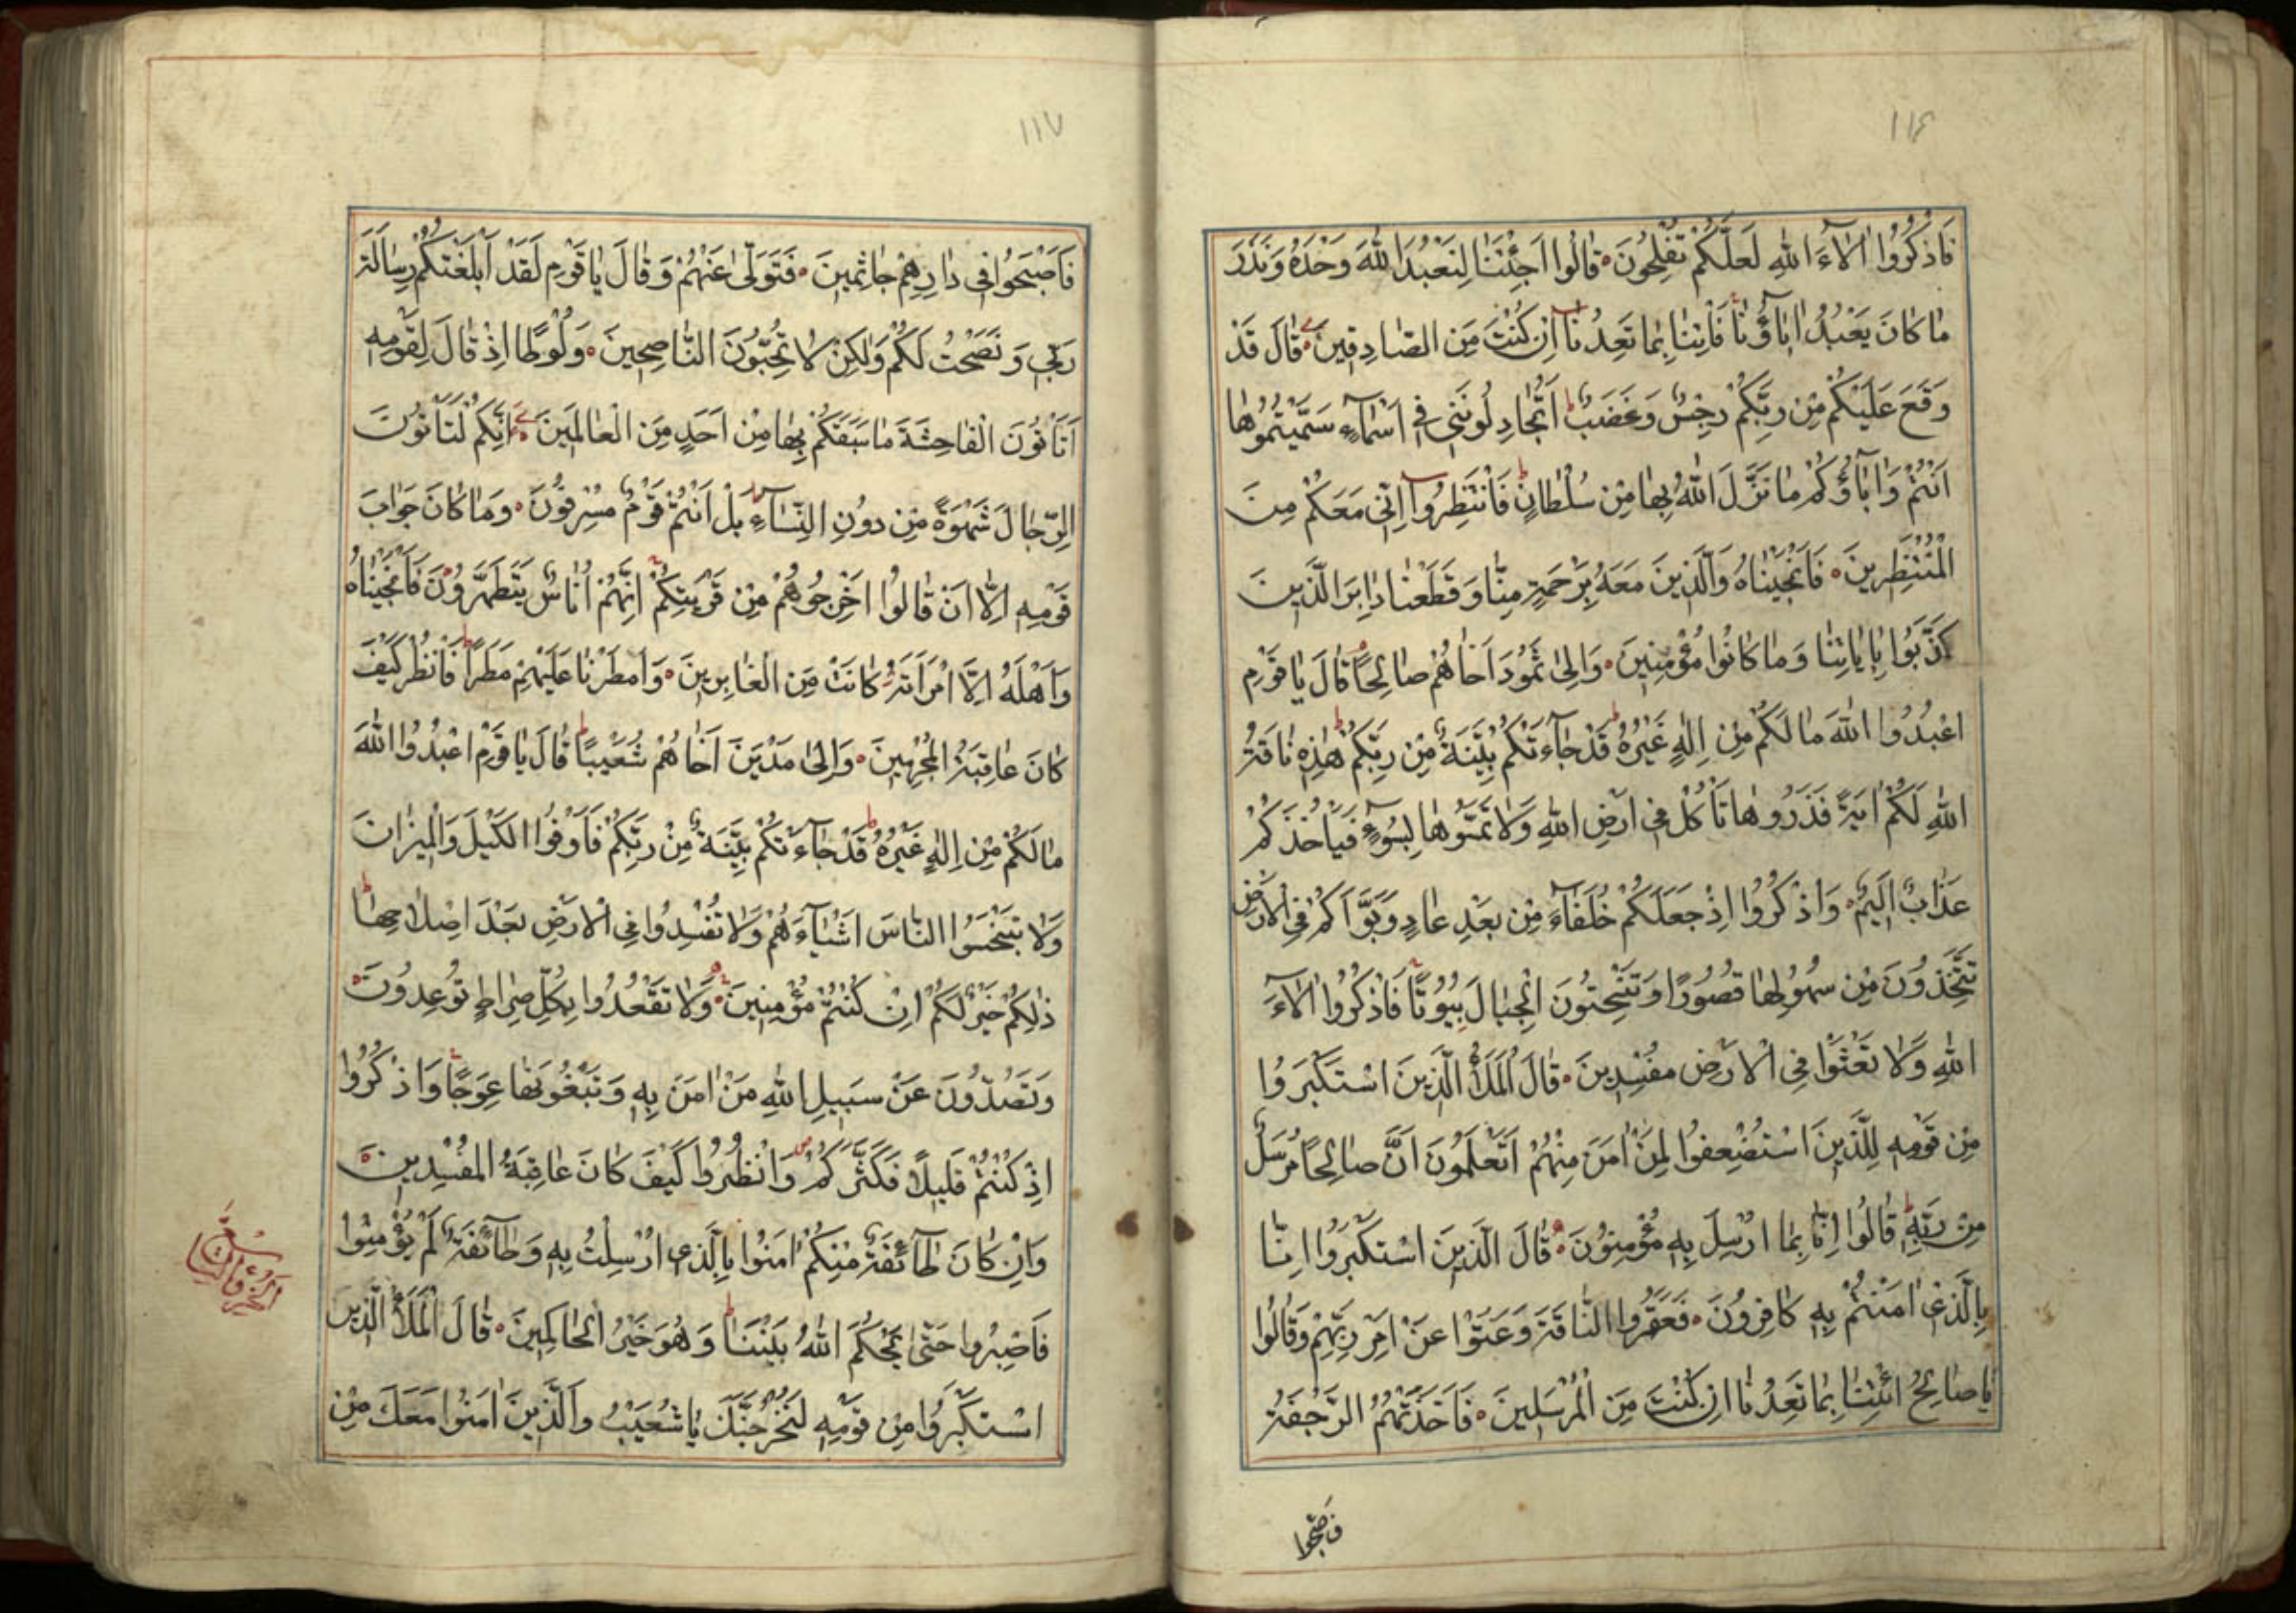 ١١٦
فَاذْكُرُوا اٰلَاءَ اللّٰهِ لَعَلَّكُمْ تُفْلِحُونَ ۝ قَالُوا اَجِئْتَنَا لِنَعْبُدَ اللّٰهَ وَحْدَهُ وَنَذَرَ
مَا كَانَ يَعْبُدُ اٰبَاؤُنَا فَاْتِنَا بِمَا تَعِدُنَا اِنْ كُنْتَ مِنَ الصَّادِقِينَ ۝ قَالَ قَدْ
وَقَعَ عَلَيْكُمْ مِنْ رَبِّكُمْ رِجْسٌ وَغَضَبٌ اَتُجَادِلُونَنِي فِي اَسْمَاءٍ سَمَّيْتُمُوهَا
اَنْتُمْ وَاٰبَاؤُكُمْ مَا نَزَّلَ اللّٰهُ بِهَا مِنْ سُلْطَانٍ فَانْتَظِرُوا اِنِّي مَعَكُمْ مِنَ
الْمُنْتَظِرِينَ ۝ فَاَنْجَيْنَاهُ وَالَّذِينَ مَعَهُ بِرَحْمَةٍ مِنَّا وَقَطَعْنَا دَابِرَ الَّذِينَ
كَذَّبُوا بِاٰيَاتِنَا وَمَا كَانُوا مُؤْمِنِينَ ۝ وَاِلٰى ثَمُودَ اَخَاهُمْ صَالِحًا قَالَ يَا قَوْمِ
اعْبُدُوا اللّٰهَ مَا لَكُمْ مِنْ اِلٰهٍ غَيْرُهُ قَدْ جَاءَتْكُمْ بَيِّنَةٌ مِنْ رَبِّكُمْ هٰذِهِ نَاقَةُ
اللّٰهِ لَكُمْ اٰيَةً فَذَرُوهَا تَاْكُلْ فِي اَرْضِ اللّٰهِ وَلَا تَمَسُّوهَا بِسُوءٍ فَيَاْخُذَكُمْ
عَذَابٌ اَلِيمٌ ۝ وَاذْكُرُوا اِذْ جَعَلَكُمْ خُلَفَاءَ مِنْ بَعْدِ عَادٍ وَبَوَّاَكُمْ فِي الْاَرْضِ
تَتَّخِذُونَ مِنْ سُهُولِهَا قُصُورًا وَتَنْحِتُونَ الْجِبَالَ بُيُوتًا فَاذْكُرُوا اٰلَاءَ
اللّٰهِ وَلَا تَعْثَوْا فِي الْاَرْضِ مُفْسِدِينَ ۝ قَالَ الْمَلَاُ الَّذِينَ اسْتَكْبَرُوا
مِنْ قَوْمِهِ لِلَّذِينَ اسْتُضْعِفُوا لِمَنْ اٰمَنَ مِنْهُمْ اَتَعْلَمُونَ اَنَّ صَالِحًا مُرْسَلٌ
مِنْ رَبِّهِ قَالُوا اِنَّا بِمَا اُرْسِلَ بِهِ مُؤْمِنُونَ ۝ قَالَ الَّذِينَ اسْتَكْبَرُوا اِنَّا
بِالَّذِي اٰمَنْتُمْ بِهِ كَافِرُونَ ۝ فَعَقَرُوا النَّاقَةَ وَعَتَوْا عَنْ اَمْرِ رَبِّهِمْ وَقَالُوا
يَا صَالِحُ ائْتِنَا بِمَا تَعِدُنَا اِنْ كُنْتَ مِنَ الْمُرْسَلِينَ ۝ فَاَخَذَتْهُمُ الرَّجْفَةُ
فَاَصْبَحُوا
١١٧
فَاَصْبَحُوا فِي دَارِهِمْ جَاثِمِينَ ۝ فَتَوَلّٰى عَنْهُمْ وَقَالَ يَا قَوْمِ لَقَدْ اَبْلَغْتُكُمْ رِسَالَةَ
رَبِّي وَنَصَحْتُ لَكُمْ وَلٰكِنْ لَا تُحِبُّونَ النَّاصِحِينَ ۝ وَلُوطًا اِذْ قَالَ لِقَوْمِهِ
اَتَاْتُونَ الْفَاحِشَةَ مَا سَبَقَكُمْ بِهَا مِنْ اَحَدٍ مِنَ الْعَالَمِينَ ۝ اِنَّكُمْ لَتَاْتُونَ
الرِّجَالَ شَهْوَةً مِنْ دُونِ النِّسَاءِ بَلْ اَنْتُمْ قَوْمٌ مُسْرِفُونَ ۝ وَمَا كَانَ جَوَابَ
قَوْمِهِ اِلَّا اَنْ قَالُوا اَخْرِجُوهُمْ مِنْ قَرْيَتِكُمْ اِنَّهُمْ اُنَاسٌ يَتَطَهَّرُونَ فَاَنْجَيْنَاهُ
وَاَهْلَهُ اِلَّا امْرَاَتَهُ كَانَتْ مِنَ الْغَابِرِينَ ۝ وَاَمْطَرْنَا عَلَيْهِمْ مَطَرًا فَانْظُرْ كَيْفَ
كَانَ عَاقِبَةُ الْمُجْرِمِينَ ۝ وَاِلٰى مَدْيَنَ اَخَاهُمْ شُعَيْبًا قَالَ يَا قَوْمِ اعْبُدُوا اللّٰهَ
مَا لَكُمْ مِنْ اِلٰهٍ غَيْرُهُ قَدْ جَاءَتْكُمْ بَيِّنَةٌ مِنْ رَبِّكُمْ فَاَوْفُوا الْكَيْلَ وَالْمِيزَانَ
وَلَا تَبْخَسُوا النَّاسَ اَشْيَاءَهُمْ وَلَا تُفْسِدُوا فِي الْاَرْضِ بَعْدَ اِصْلَاحِهَا
ذٰلِكُمْ خَيْرٌ لَكُمْ اِنْ كُنْتُمْ مُؤْمِنِينَ ۝ وَلَا تَقْعُدُوا بِكُلِّ صِرَاطٍ تُوعِدُونَ
وَتَصُدُّونَ عَنْ سَبِيلِ اللّٰهِ مَنْ اٰمَنَ بِهِ وَتَبْغُونَهَا عِوَجًا وَاذْكُرُوا
اِذْ كُنْتُمْ قَلِيلًا فَكَثَّرَكُمْ وَانْظُرُوا كَيْفَ كَانَ عَاقِبَةُ الْمُفْسِدِينَ ۝
وَاِنْ كَانَ طَائِفَةٌ مِنْكُمْ اٰمَنُوا بِالَّذِي اُرْسِلْتُ بِهِ وَطَائِفَةٌ لَمْ يُؤْمِنُوا
فَاصْبِرُوا حَتّٰى يَحْكُمَ اللّٰهُ بَيْنَنَا وَهُوَ خَيْرُ الْحَاكِمِينَ ۝ قَالَ الْمَلَاُ الَّذِينَ
اسْتَكْبَرُوا مِنْ قَوْمِهِ لَنُخْرِجَنَّكَ يَا شُعَيْبُ وَالَّذِينَ اٰمَنُوا مَعَكَ مِنْ